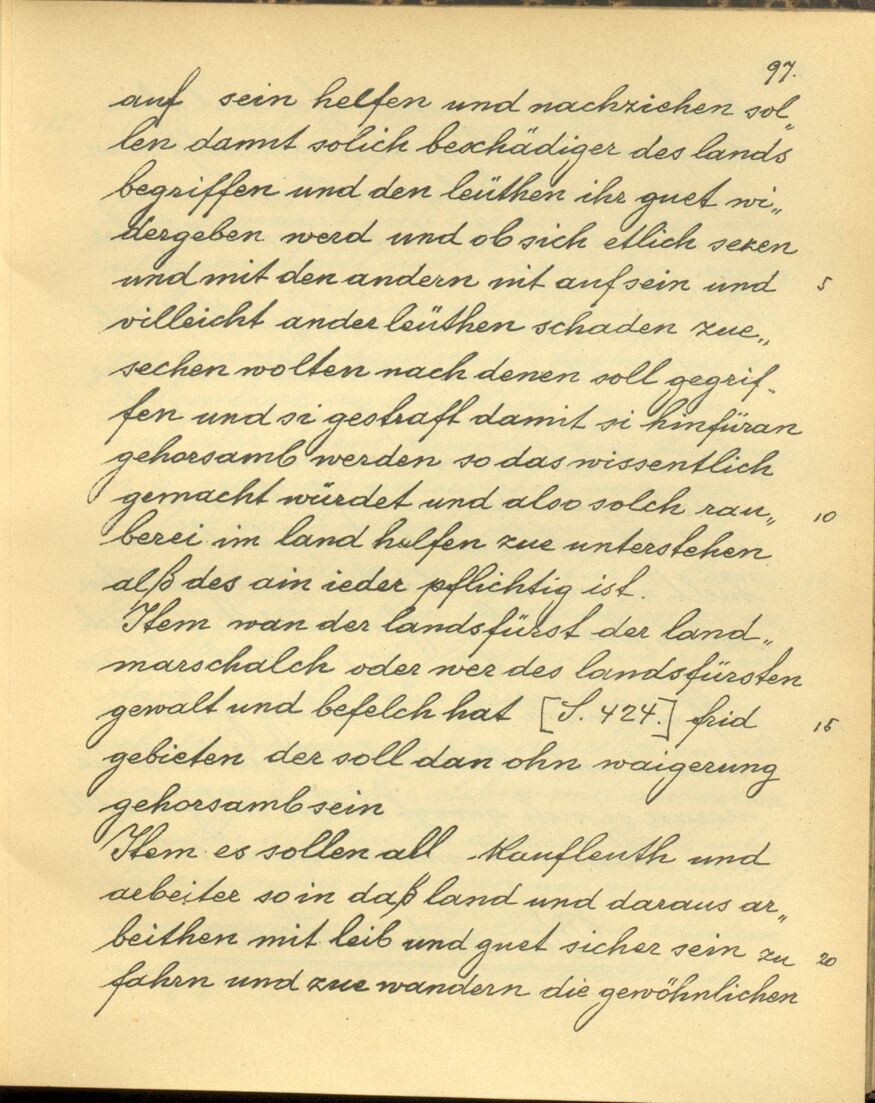 97.
auf sein helfen und nachziehen sol„
len damit solich beschädiger des lands
begriffen und den leüthen ihr guet wi„
dergeben werd und ob sich etlich sezen
und mit den andern nit auf sein und 5
villeicht ander leüthen schaden zue„
sechen wolten nach denen soll gegrif„
fen und si gestraft damit si hinfüran
gehorsamb werden so das wissentlich
gemacht würdet und also solch rau„ 10
berei im land helfen zue unterstehen
alß des ain ieder pflichtig ist.
Item wan der landsfürst der land„
marschalch oder wer des landsfürsten
gewalt und befelch hat [S. 424.] frid 15
gebieten der soll dan ohn waigerung
gehorsamb sein
Item es sollen all kaufleuth und
arbeiter so in daß land und daraus ar„
beithen mit leib und guet sicher sein zu 20
fahrn und zue wandern die gewöhnlichen